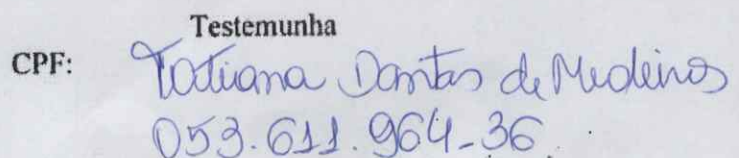 Testemunha
CPF: Tatiana Dantas de Medeiros
053.611.964-36